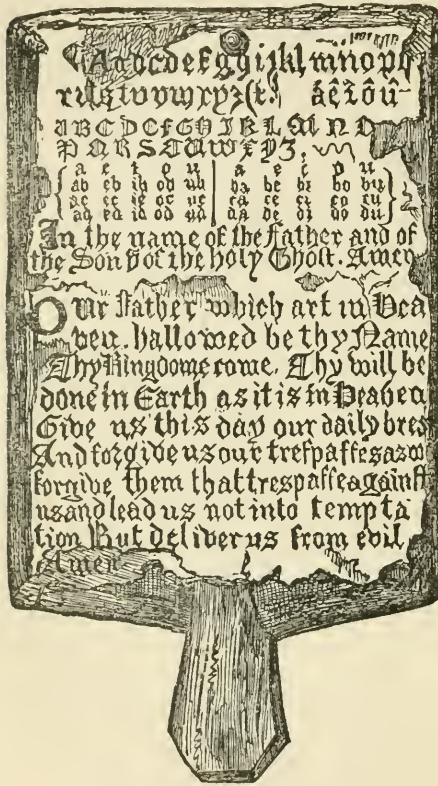 Abcdefghijklmnopq
rsstuvwxyz&. áéiôû
ABCDEFGHIJKLMNO
PQRSTUWXYZ,
a e i o u a e i o u
ab eb ib ob ub ba be bi bo bu
ac ec ic oc uc ca ce ci co cu
ad ed id od ud da de di do du
In the name of the Father and of
the Son & of the holy Ghost. Amen
Our Father which art in Hea
ven. hallowed be thy Name
Thy Kingdome come. Thy will be
done in Earth as it is in Heaven
Give us this day our daily bred
And forgive us our trespasses as we
forgive them that trespasse against
us and lead us not into tempta
tion But deliver us from evil
Amen